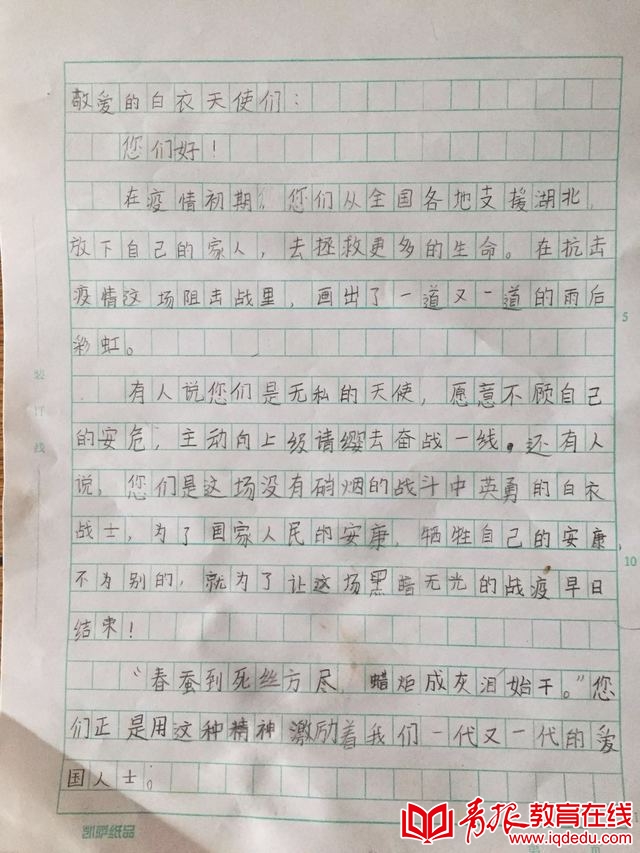 敬爱的白衣天使们：
您们好！
在疫情初期，您们从全国各地支援湖北，
放下自己的家人，去拯救更多的生命。在抗击
疫情这场阻击战里，画出了一道又一道的雨后
彩虹。
有人说您们是无私的天使，愿意不顾自己
的安危，主动向上级请缨去奋战一线。还有人
说，您们是这场没有硝烟的战斗中英勇的白衣
战士，为了国家人民的安康，牺牲自己的安康，
不为别的，就为了让这场黑暗无光的战疫早日
结束！
“春蚕到死丝方尽，蜡炬成灰泪始干。”您
们正是用这种精神激励着我们一代又一代的爱
国人士。
5
10
装
订
线
凯萨纸品
青报教育在线
www.iqdedu.com